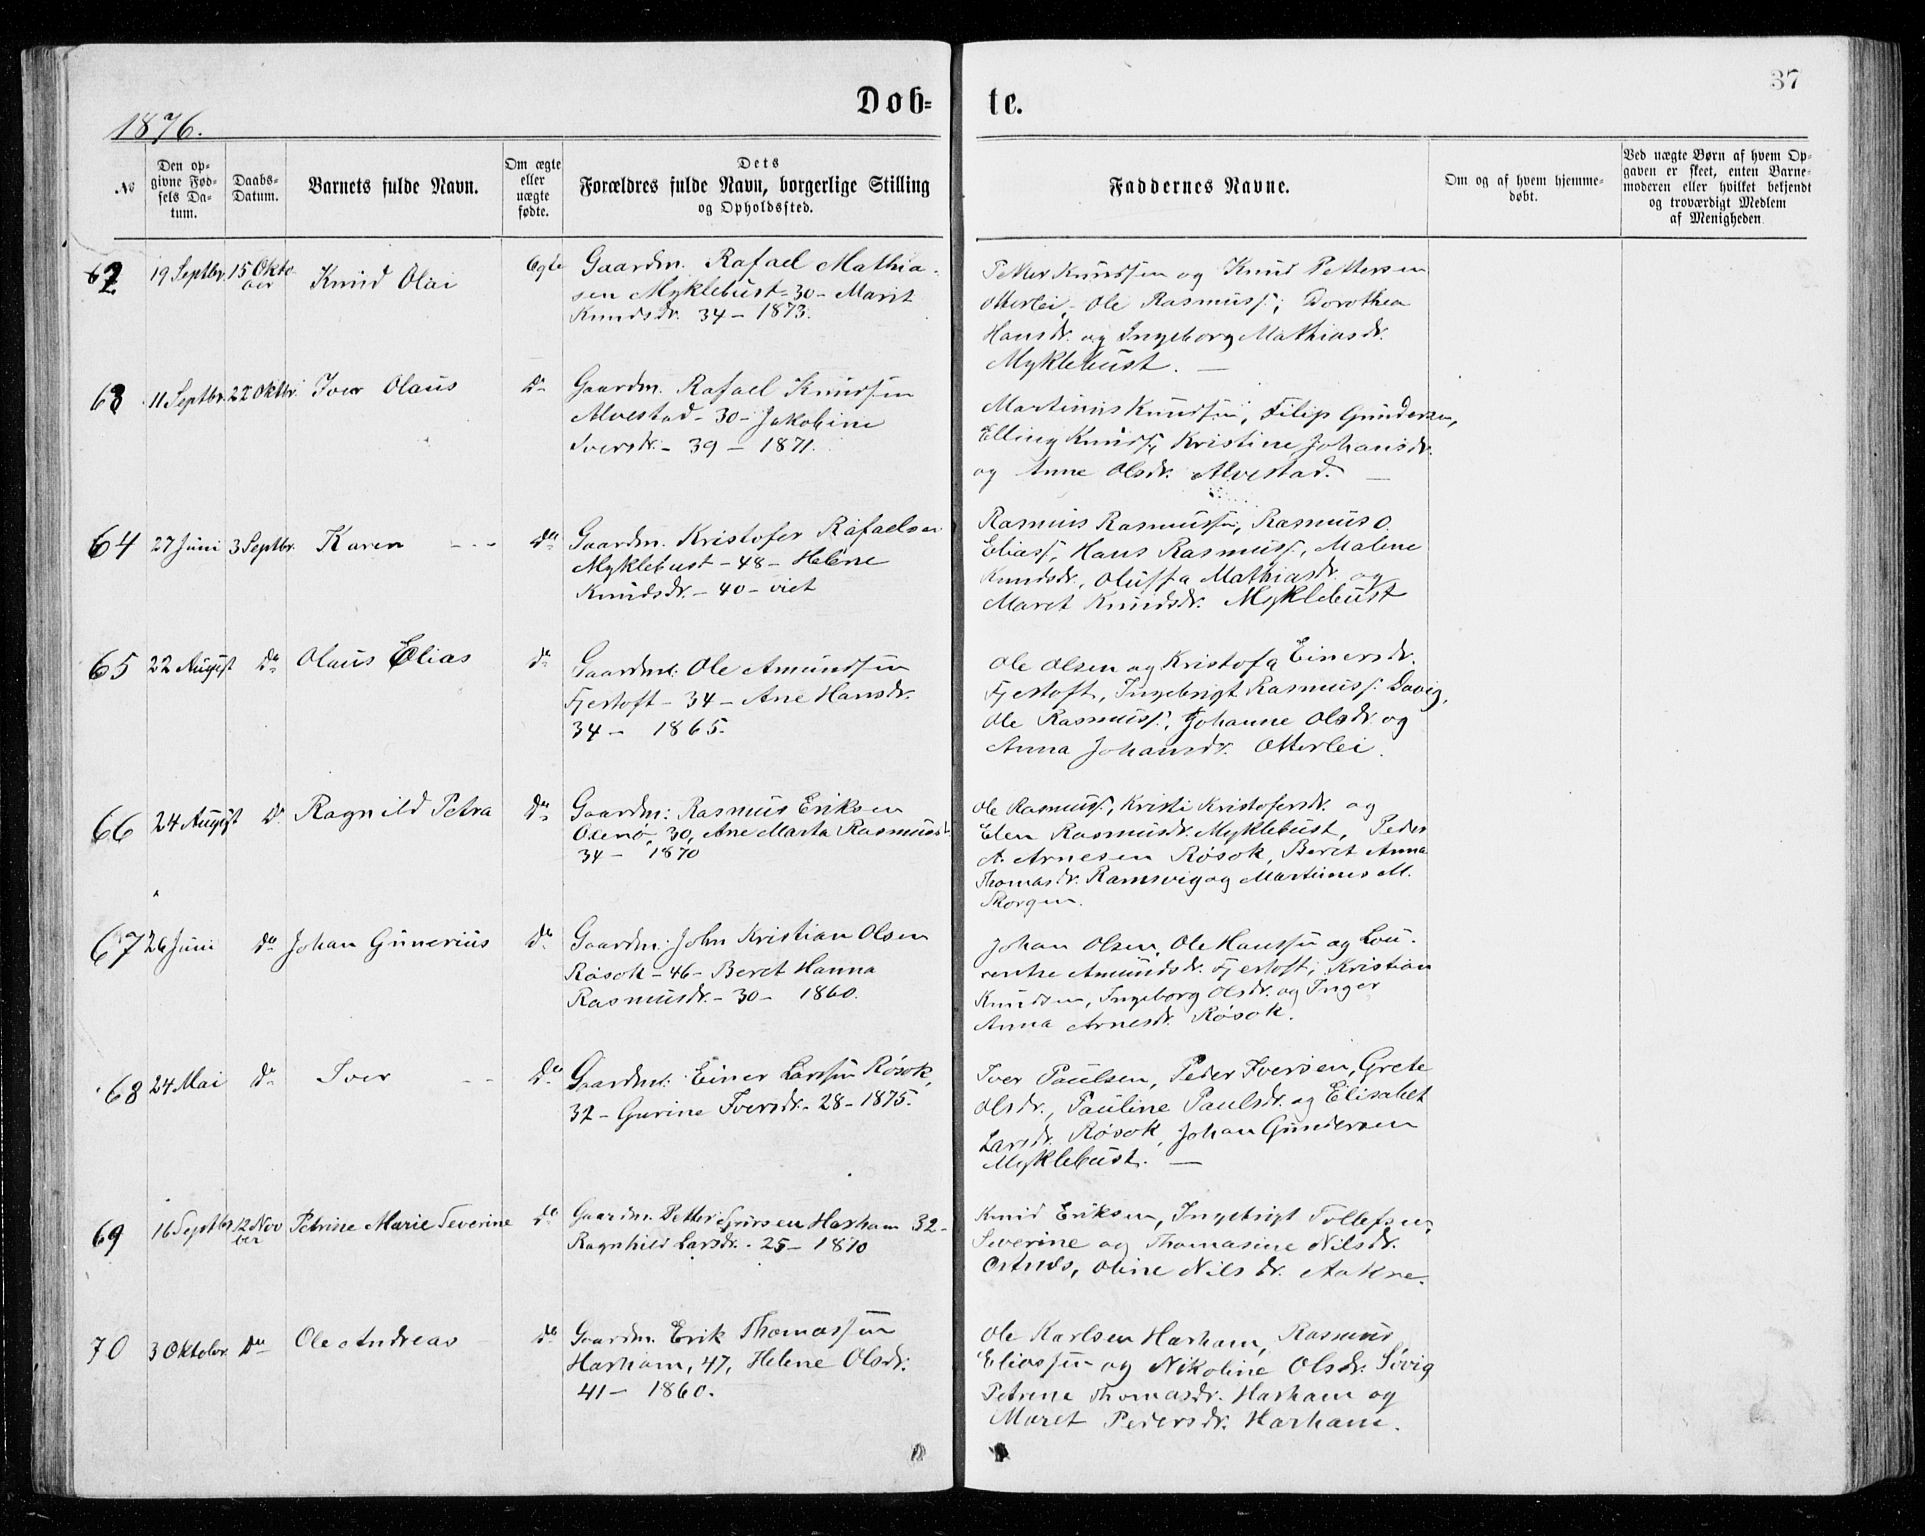 37
Døb-
te.
1876.
No
Den op-
givne Fød-
sels Da-
tum.
Daabs-
Datum.
Barnets fulde Navn.
Om ægte
eller
uægte
fødte.
Dets
Forældres fulde Navn, borgerlige Stilling
og Opholdssted.
Faddernes Navne.
Om og af hvem hjemme-
døbt.
Ved uægte Børn af hvem Op-
gaven er skeet, enten Barne-
moderen eller hvilket bekjendt
og troværdigt Medlem
af Menigheden.
62
19 Septbr.
15 Okto
ber
Knud Olai
Egte
Gaardm. Rafael Mathia-
sen Myklebust - 30 - Marit
Knudsdr. 34 - 1873.
Petter Knudsen og Knud Pettersen
Otterlei, Ole Rasmuss., Dorothea
Hansdr. og Ingeborg Mathiasdr.
Myklebust. —
63
11 Septbr.
22 Oktbr.
Iver Olaus
Do
Gaardm. Rafael Knudsen
Alvestad - 30 - Jakobine
Iversdr. - 39 - 1871.
Martinus Knudsen, Filip Gundersen,
Elling Knuds., Kristine Johansdr.
og Anne Olsdr. Alvestad. —
64
27 Juni
3 Septbr.
Karen - - -
Do
Gaardm. Kristofer Rafaelsen
Myklebust - 48 - Helene
Knudsdr. - 40 - viet
Rasmus Rasmussen, Rasmus O.
Eliass., Hans Rasmuss., Malene
Knudsdr., Oluffa Mathiasdr. og
Maret Knudsdr. Myklebust
65
22 August
Do
Olaus Elias
Do
Gaardm. Ole Amundsen
Fjertoft - 34 - Ane Hansdr.
34 - 1865.
Ole Olsen og Kristofa Einersdr.
Fjertoft, Ingebrigt Rasmuss. Davig,
Ole Rasmuss., Johanne Olsdr. og
Anna Johansdr. Otterlei.
66
24 August
Do
Ragnild Petra
Do
Gaardm: Rasmus Eriksen
30, Ane Marta Rasmusdr.
34 - 1870
Ole Rasmuss., Kristi Kristofersdr. og
Elen Rasmusdr. Myklebust, Peder
A. Arnesen Røsok, Beret Anna
Thomasdr. Ramsvig og Martines M.
Skorgen.
67
26 Juni
Do
Johan Gunerius
Do
Gaardm: John Kristian Olsen
Røsok - 46 - Beret Hanna
Rasmusdr. - 30 - 1860.
Johan Olsen, Ole Hanssen og Lou-
rentse Amundsdr. Fjertoft, Kristian
Knudsen, Ingeborg Olsdr. og Inger
Anna Arnesdr. Røsok.
68
24 Mai
Do
Iver - -
Do
Gaardm. Einer Larssen Røsok,
32 - Gurine Iversdr. - 28 - 1875.
Iver Paulsen, Peder Iversen, Grete
Olsdr., Pauline Paulsdr. og Elisabet
Larsdr. Røsok, Johan Gundersen
Myklebust. —
69
16 Septbr.
12 Nov
ber
Petrine Marie Severine
Do
Gaardm. Petter Harham 32 -
Ragnhild Larsdr. - 25 - 1870
Knud Eriksen, Ingebrigt Tollefsen,
Severine og Thomasine Nilsdr.
Østnes, Oline Nilsdr. Aakre.
70
3 Oktober.
Do
Ole Andreas
Do
Gaardm. Erik Thomassen
Harham, 47, Helene Olsdr.
41 - 1860.
Ole Karlsen Harham, Rasmus
Eliassen og Nikoline Olsdr. Søvig
Petrine Thomasdr. Harham og
Maret Pedersdr. Harham.